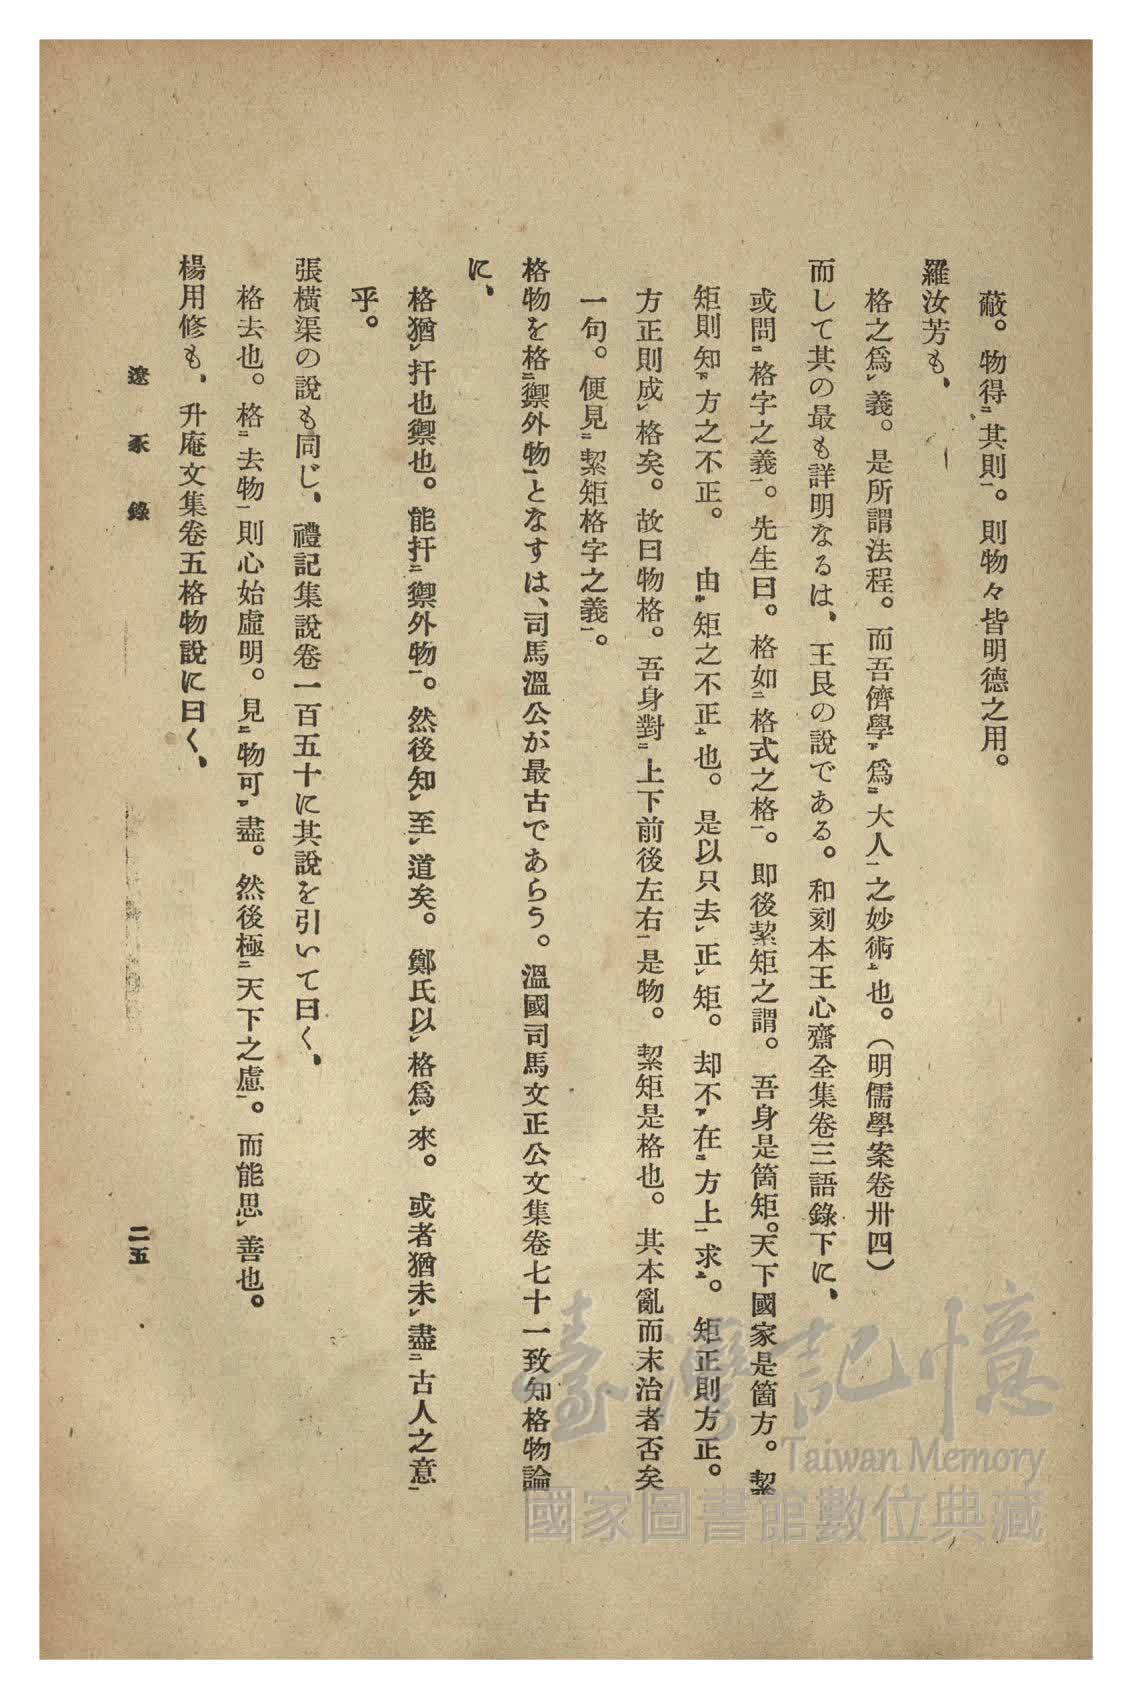 蔽。物得二其則一。則物々皆明德之用。
羅汝芳も、
格之爲レ義。是所謂法程。而吾儕學下爲二大人一之妙術上也。（明儒學案卷卅四）
而して其の最も詳明なるは、王艮の說である。和刻本王心齋全集卷三語錄下に、
或問二格字之義一。先生曰。格如二格式之格一。即後絜矩之謂。吾身是箇矩。天下國家是箇方。絜
矩則知下方之不正。由中矩之不正上也。是以只去レ正レ矩。却不下在二方上一求上。矩正則方正。
方正則成レ格矣。故曰物格。吾身對二上下前後左右一是物。絜矩是格也。其本亂而末治者否矣
一句。便見二絜矩格字之義一。
格物を格二禦外物一となすは、司馬溫公が最古であらう。溫國司馬文正公文集卷七十一致知格物論
に、
格猶レ扞也禦也。能扞二禦外物一。然後知レ至レ道矣。鄭氏以レ格爲レ來。或者猶未レ盡二古人之意一
乎。
張橫渠の說も同じ、禮記集說卷一百五十に其說を引いて曰く、
格去也。格二去物一則心始虛明。見二物可一レ盡。然後極二天下之慮一。而能思レ善也。
楊用修も、升庵文集卷五格物說に曰く、
遼豕錄
二五
臺灣記憶
Taiwan Memory
國家圖書館數位典藏